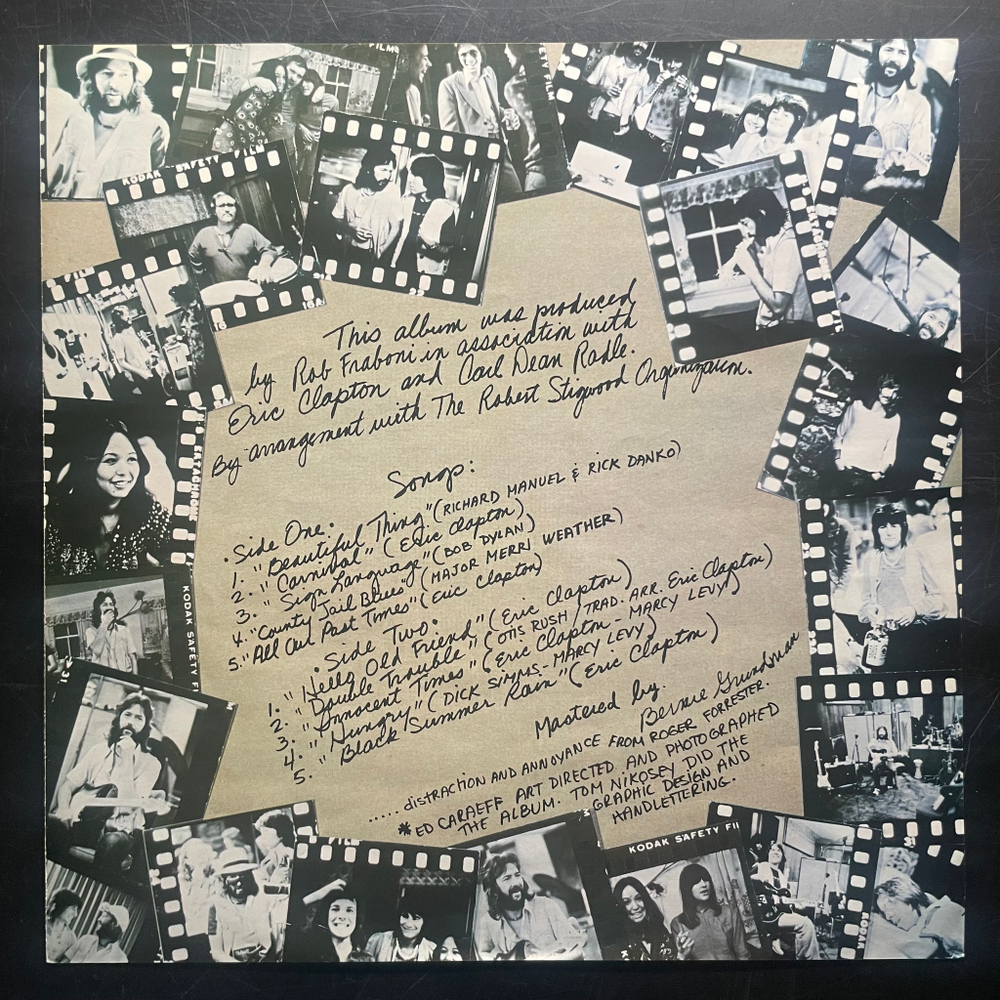 KODAK SAFETY FILM
This album was produced
by Rob Fraboni in association with
Eric Clapton and Carl Dean Radle.
By arrangement with The Robert Stigwood Organization.
Songs:
• Side One:
1. "Beautiful Thing" (RICHARD MANUEL & RICK DANKO)
2. "Carnival" (Eric Clapton)
3. "Sign Language" (BOB DYLAN)
4. "County Jail Blues" (MAJOR MERRI WEATHER)
5. "All Our Past Times" (Eric Clapton)
• Side Two:
1. "Hello Old Friend" (Eric Clapton)
2. "Double Trouble" (OTIS RUSH / TRAD. ARR. Eric Clapton)
3. "Innocent Times" (Eric Clapton - MARCY LEVY)
4. "Hungry" (DICK SIMMS - MARCY LEVY)
5. "Black Summer Rain" (Eric Clapton)
Mastered by:
Bernie Grundman
..... distraction AND ANNOYANCE FROM ROGER FORRESTER.
*ED CARAEFF ART DIRECTED AND PHOTOGRAPHED
THE ALBUM. TOM NIKOSEY DID THE
GRAPHIC DESIGN AND
HANDLETTERING.
KODAK SAFETY F
KODAK SAFETY FI